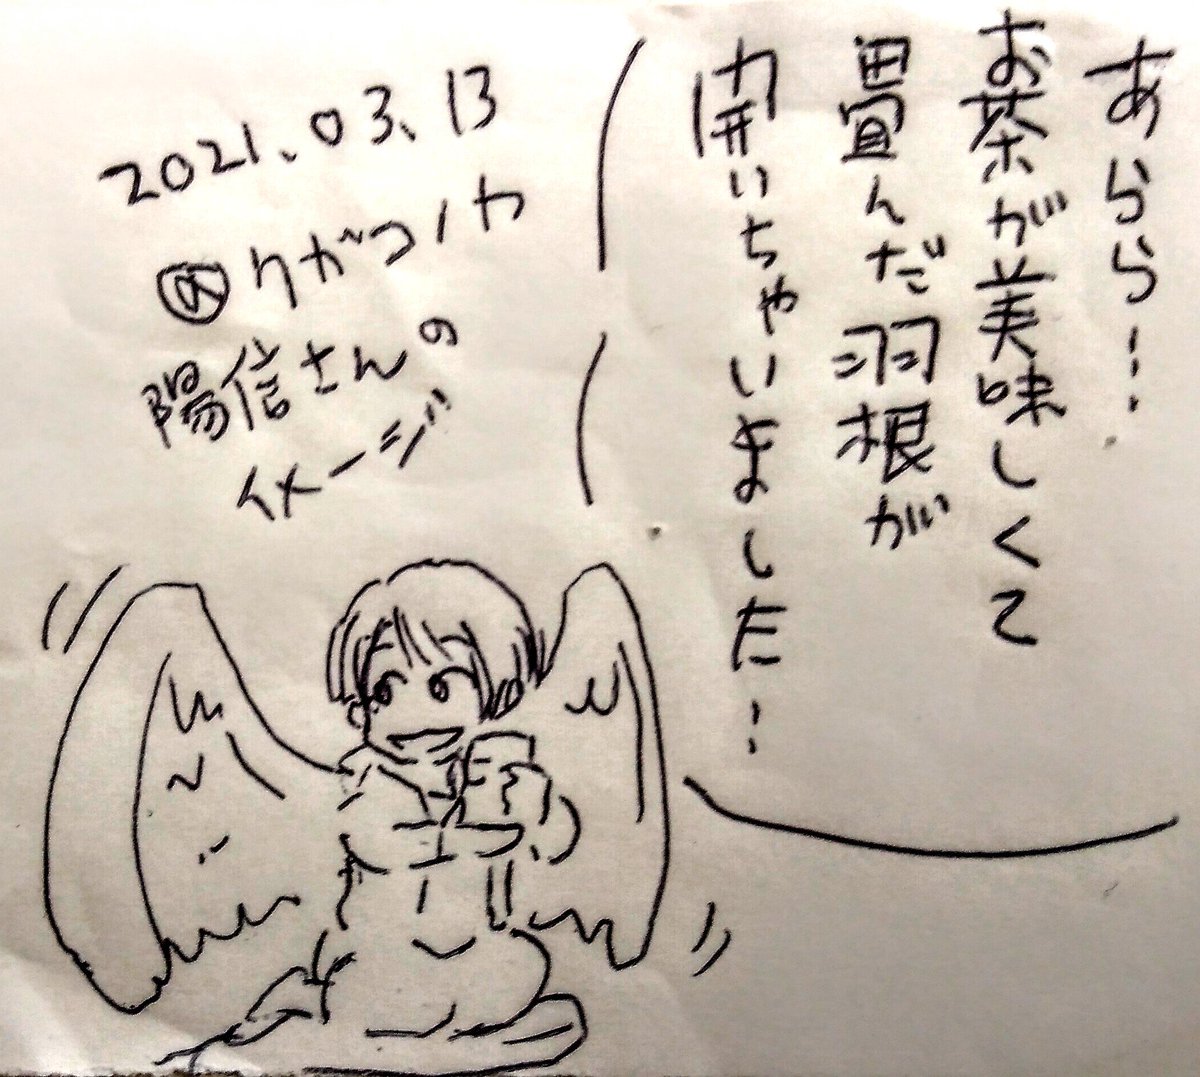 あらら…
お茶が美味しくて
畳んだ羽根が
開いちゃいました…
2021.03.13
クガコノカ
陽信さんの
イメージ